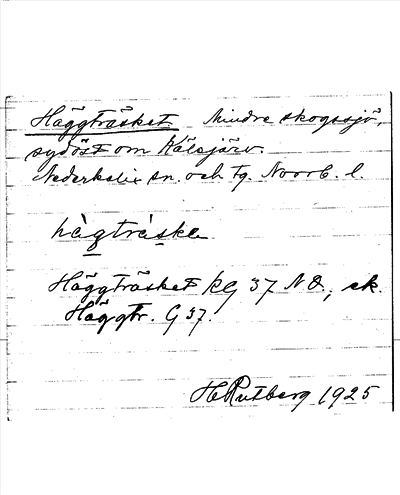 Häggträsket Mindre skogssjö,
sydöst om Kälsjärv.
Nederkalix sn. och tg. Norrb. l.
hàgtràske
Häggträsket kg 37 NO., ek.
Häggtr. G 37.
H Rutberg 1925